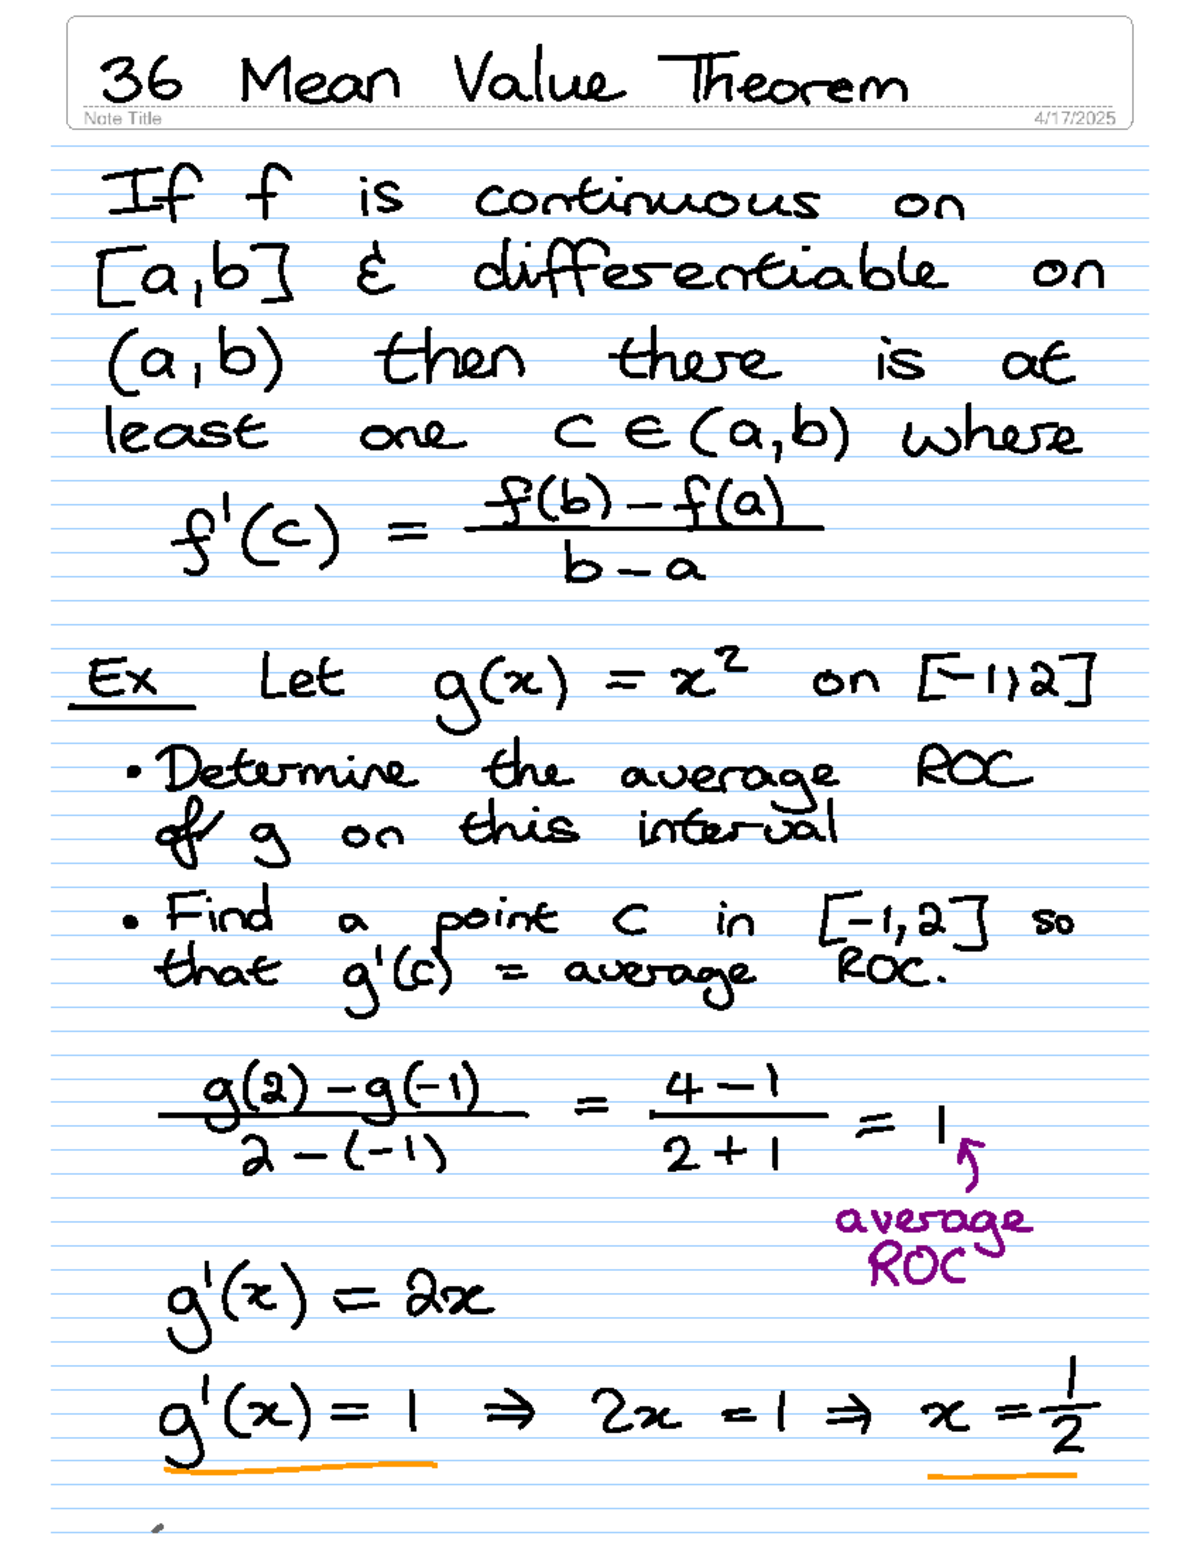 36 Mean Value Theorem
Note Title
4/17/2025
If f is continuous on
[a,b] & differentiable on
(a,b) then there is at
least one c ∈ (a,b) where
f'(c) = \frac{f(b) - f(a)}{b - a}
Ex Let g(x) = x² on [-1,2]
• Determine the average ROC
of g on this interval
• Find a point c in [-1,2] so
that g'(c) = average ROC.
\frac{g(2) - g(-1)}{2 - (-1)} = \frac{4 - 1}{2 + 1} = 1
average
ROC
g'(x) = 2x
g'(x) = 1 ⇒ 2x = 1 ⇒ x = \frac{1}{2}